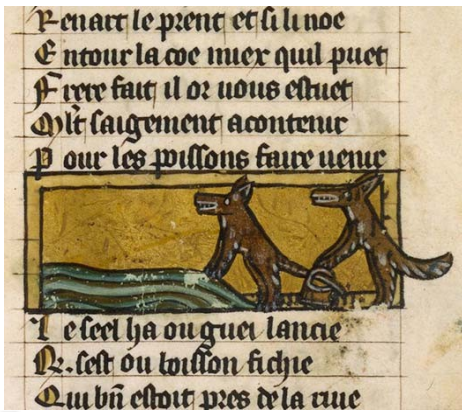 Renart le prent et si li noe
Entour la coe miex quil puet
Frere fait il or uous estuet
Mlt saigement a contenir
Pour les poissons faire uenir
Le seel ha ou guei lancie
R. sest ou boisson fichie
Qui bñ estoit pres de la riue